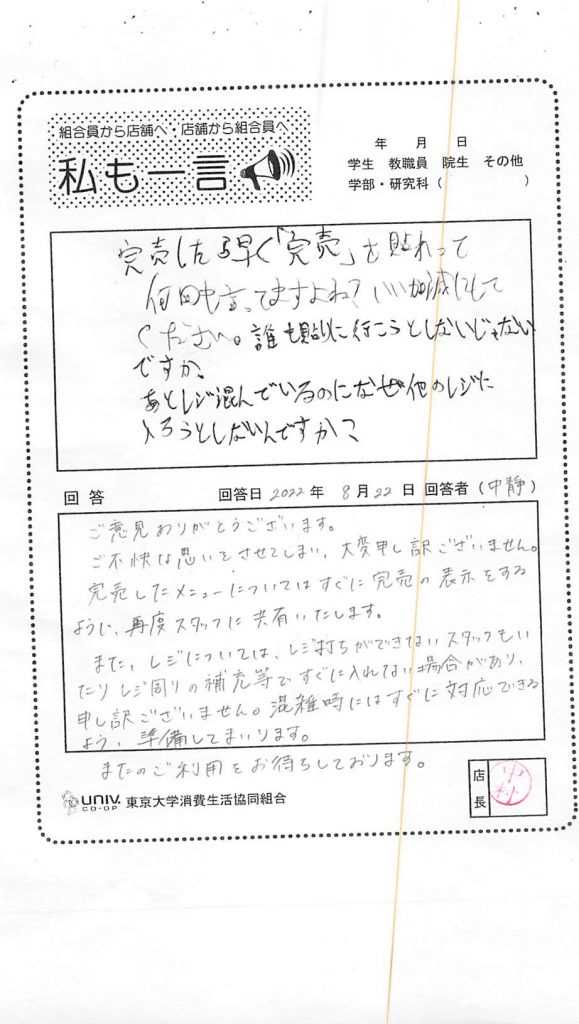 組合員から店舗へ・店舗から組合員へ
私も一言
年 月 日
学生 教職員 院生 その他
学部・研究科（ ）
完売したら早く「完売」を貼れって
何回も言ってますよね？いい加減にして
ください。誰も貼りに行こうとしないじゃない
ですか。
あとレジ混んでいるのになぜ他のレジに
入ろうとしないんですか？
回答 回答日 2022年 8月22日 回答者（中静）
ご意見ありがとうございます。
ご不快な思いをさせてしまい、大変申し訳ございません。
完売したメニューについてはすぐに完売の表示をする
ように、再度スタッフに共有いたします。
また、レジについては、レジ打ちができないスタッフもい
たりレジ周りの補充等ですぐに入れない場合があり、
申し訳ございません。混雑時にはすぐに対応できる
よう、準備してまいります。
またのご利用をお待ちしております。
UNIV. CO-OP 東京大学消費生活協同組合
店長 中村